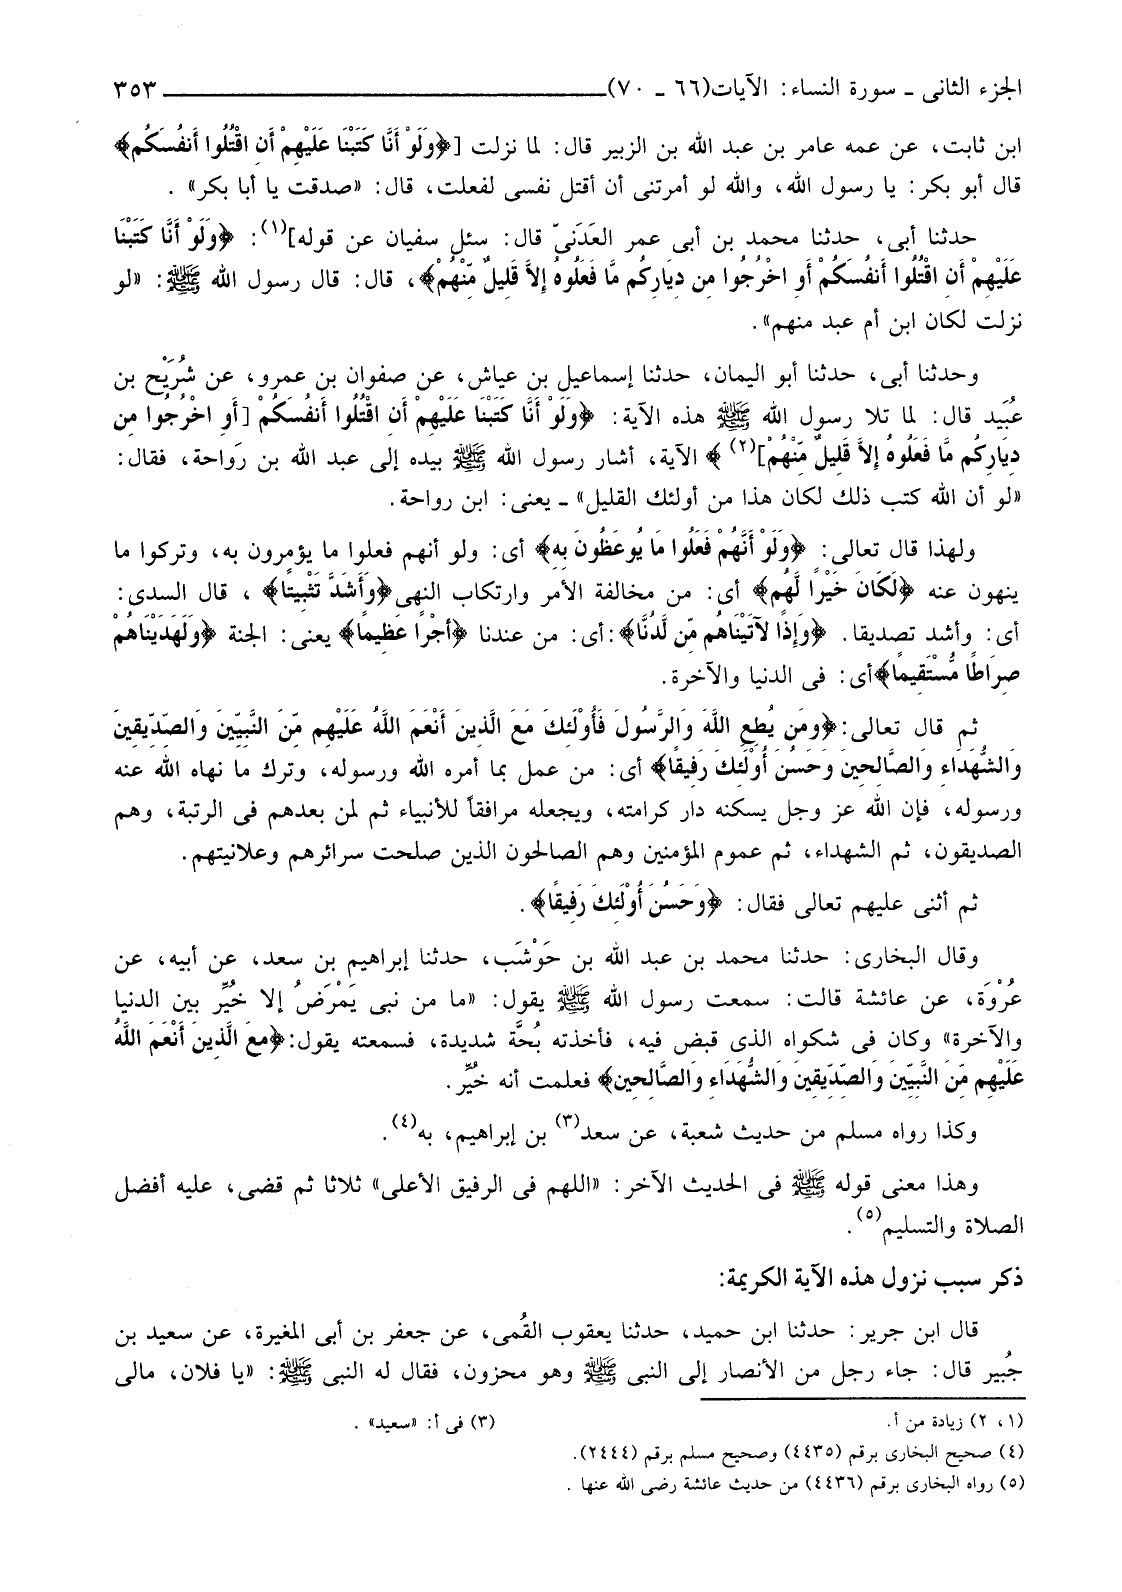 الجزء الثانى ـ سورة النساء: الآيات(٦٦ ـ ٧٠) ٣٥٣
ابن ثابت، عن عمه عامر بن عبد الله بن الزبير قال: لما نزلت [﴿وَلَوْ أَنَّا كَتَبْنَا عَلَيْهِمْ أَنِ اقْتُلُوا أَنفُسَكُم﴾
قال أبو بكر: يا رسول الله، والله لو أمرتنى أن أقتل نفسى لفعلت، قال: «صدقت يا أبا بكر» .
حدثنا أبى، حدثنا محمد بن أبى عمر العَدَنىّ قال: سئل سفيان عن قوله](١): ﴿وَلَوْ أَنَّا كَتَبْنَا
عَلَيْهِمْ أَنِ اقْتُلُوا أَنفُسَكُمْ أَوِ اخْرُجُوا مِن دِيَارِكُم مَّا فَعَلُوهُ إِلاَّ قَلِيلٌ مِّنْهُمْ﴾، قال: قال رسول الله ﷺ: «لو
نزلت لكان ابن أم عبد منهم».
وحدثنا أبى، حدثنا أبو اليمان، حدثنا إسماعيل بن عياش، عن صفوان بن عمرو، عن شُرَيْح بن
عُبَيد قال: لما تلا رسول الله ﷺ هذه الآية: ﴿وَلَوْ أَنَّا كَتَبْنَا عَلَيْهِمْ أَنِ اقْتُلُوا أَنفُسَكُمْ [أَوِ اخْرُجُوا مِن
دِيَارِكُم مَّا فَعَلُوهُ إِلاَّ قَلِيلٌ مِّنْهُمْ](٢) ﴾ الآية، أشار رسول الله ﷺ بيده إلى عبد الله بن رَواحة، فقال:
«لو أن الله كتب ذلك لكان هذا من أولئك القليل» ـ يعنى: ابن رواحة.
ولهذا قال تعالى: ﴿وَلَوْ أَنَّهُمْ فَعَلُوا مَا يُوعَظُونَ بِهِ﴾ أى: ولو أنهم فعلوا ما يؤمرون به، وتركوا ما
ينهون عنه ﴿لَكَانَ خَيْرًا لَّهُم﴾ أى: من مخالفة الأمر وارتكاب النهى ﴿وَأَشَدَّ تَثْبِيتًا﴾ ، قال السدى:
أى: وأشد تصديقا. ﴿وَإِذًا لآتَيْنَاهُم مِّن لَّدُنَّا﴾:أى: من عندنا ﴿أَجْرًا عَظِيمًا﴾ يعنى: الجنة ﴿وَلَهَدَيْنَاهُمْ
صِرَاطًا مُّسْتَقِيمًا﴾أى: فى الدنيا والآخرة.
ثم قال تعالى:﴿وَمَن يُطِعِ اللَّهَ وَالرَّسُولَ فَأُوْلَئِكَ مَعَ الَّذِينَ أَنْعَمَ اللَّهُ عَلَيْهِم مِّنَ النَّبِيِّينَ وَالصِّدِّيقِينَ
وَالشُّهَدَاءِ وَالصَّالِحِينَ وَحَسُنَ أُوْلَئِكَ رَفِيقًا﴾ أى: من عمل بما أمره الله ورسوله، وترك ما نهاه الله عنه
ورسوله، فإن الله عز وجل يسكنه دار كرامته، ويجعله مرافقاً للأنبياء ثم لمن بعدهم فى الرتبة، وهم
الصديقون، ثم الشهداء، ثم عموم المؤمنين وهم الصالحون الذين صلحت سرائرهم وعلانيتهم.
ثم أثنى عليهم تعالى فقال: ﴿وَحَسُنَ أُوْلَئِكَ رَفِيقًا﴾.
وقال البخارى: حدثنا محمد بن عبد الله بن حَوْشَب، حدثنا إبراهيم بن سعد، عن أبيه، عن
عُرْوَة، عن عائشة قالت: سمعت رسول الله ﷺ يقول: «ما من نبى يَمْرَضُ إلا خُيِّر بين الدنيا
والآخرة» وكان فى شكواه الذى قبض فيه، فأخذته بُحَّة شديدة، فسمعته يقول:﴿مَعَ الَّذِينَ أَنْعَمَ اللَّهُ
عَلَيْهِم مِّنَ النَّبِيِّينَ وَالصِّدِّيقِينَ وَالشُّهَدَاءِ وَالصَّالِحِين﴾ فعلمت أنه خُيِّر.
وكذا رواه مسلم من حديث شعبة، عن سعد(٣) بن إبراهيم، به(٤).
وهذا معنى قوله ﷺ فى الحديث الآخر: «اللهم فى الرفيق الأعلى» ثلاثا ثم قضى، عليه أفضل
الصلاة والتسليم(٥).
ذكر سبب نزول هذه الآية الكريمة:
قال ابن جرير: حدثنا ابن حميد، حدثنا يعقوب القُمى، عن جعفر بن أبى المغيرة، عن سعيد بن
جُبير قال: جاء رجل من الأنصار إلى النبى ﷺ وهو محزون، فقال له النبى ﷺ: «يا فلان، مالى
(١، ٢) زيادة من أ. (٣) فى أ: «سعيد» .
(٤) صحيح البخارى برقم (٤٤٣٥) وصحيح مسلم برقم (٢٤٤٤).
(٥) رواه البخارى برقم (٤٤٣٦) من حديث عائشة رضى الله عنها .